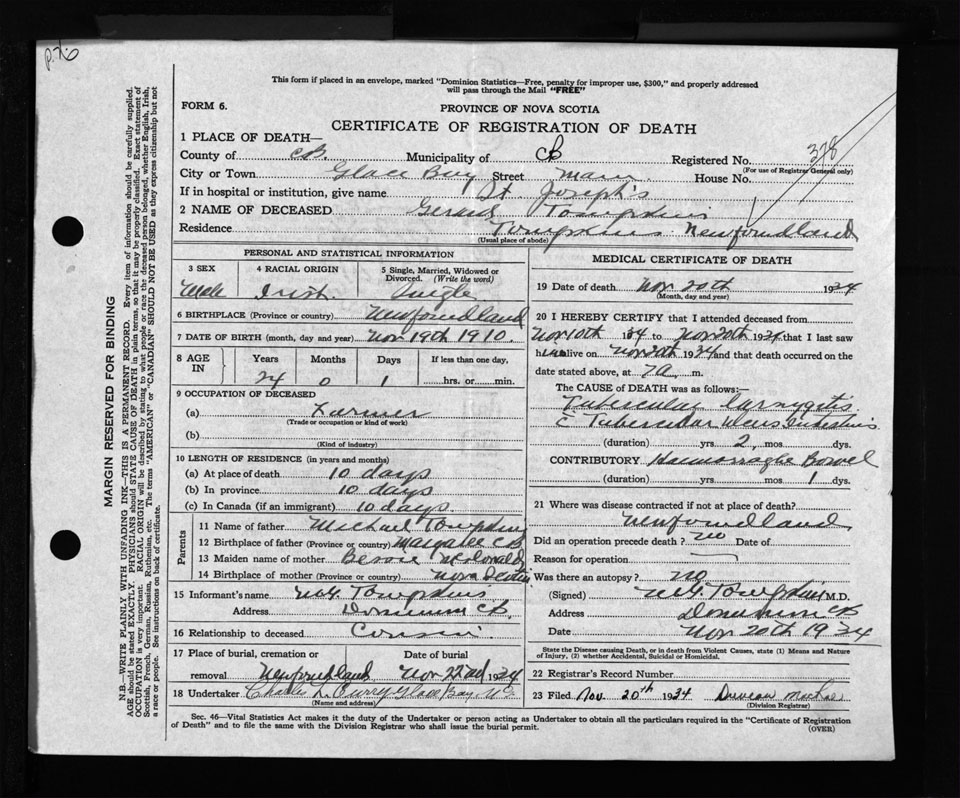 P.76
This form if placed in an envelope, marked "Dominion Statistics—Free, penalty for improper use, $300," and properly addressed
will pass through the Mail "FREE"
FORM 6.
PROVINCE OF NOVA SCOTIA
CERTIFICATE OF REGISTRATION OF DEATH
1 PLACE OF DEATH—
County of CB. Municipality of CB Registered No. 378
(For use of Registrar General only)
City or Town Glace Bay Street Main House No.
If in hospital or institution, give name St. Joseph's
2 NAME OF DECEASED Gerard Tompkins
Residence Tompkins Newfoundland
(Usual place of abode)
PERSONAL AND STATISTICAL INFORMATION
3 SEX 4 RACIAL ORIGIN 5 Single, Married, Widowed or Divorced. (Write the word)
Male Irish. Single
6 BIRTHPLACE (Province or country) Newfoundland
7 DATE OF BIRTH (month, day and year) Nov 19th 1910.
8 AGE IN Years Months Days If less than one day,
24 0 1 hrs. or min.
9 OCCUPATION OF DECEASED
(a) Farmer
(Trade or occupation or kind of work)
(b)
(Kind of industry)
10 LENGTH OF RESIDENCE (in years and months)
(a) At place of death 10 days
(b) In province 10 days
(c) In Canada (if an immigrant) 10 days.
Parents
11 Name of father Michael Tompkins
12 Birthplace of father (Province or country) Margaree CB
13 Maiden name of mother Bessie McDonald
14 Birthplace of mother (Province or country) Nova Scotia
15 Informant's name M.G. Tompkins
Address Dominion CB
16 Relationship to deceased Cousin.
17 Place of burial, cremation or removal Date of burial
Newfoundland Nov 22nd 1934
18 Undertaker Charles L. Curry Glace Bay NS
(Name and address)
MEDICAL CERTIFICATE OF DEATH
19 Date of death Nov 20th 1934
(Month, day and year)
20 I HEREBY CERTIFY that I attended deceased from
Nov 10th 1934 to Nov 20th 1934 that I last saw
him alive on Nov 20th 1934 and that death occurred on the
date stated above, at 7a m.
The CAUSE OF DEATH was as follows:—
Tubercular Laryngitis
c Tubercular Ulcers Intestines
(duration) yrs. 2 mos. dys.
CONTRIBUTORY Haemorraghe Bowel
(duration) yrs. mos. 1 dys.
21 Where was disease contracted if not at place of death?
Newfoundland
Did an operation precede death? no
Reason for operation
Was there an autopsy? no
(Signed) M.G. Tompkins M.D.
Address Dominion CB
Date Nov 20th 1934
State the Disease causing Death, or in death from Violent Causes, state (1) Means and Nature of Injury, (2) whether Accidental, Suicidal or Homicidal.
22 Registrar's Record Number
23 Filed Nov. 20th 1934 Duncan
(Division Registrar)
Sec. 46—Vital Statistics Act makes it the duty of the Undertaker or person acting as Undertaker to obtain all the particulars required in the "Certificate of Registration
of Death" and to file the same with the Division Registrar who shall issue the burial permit.
(OVER)
MARGIN RESERVED FOR BINDING
N.B.—WRITE PLAINLY WITH UNFADING INK—THIS IS A PERMANENT RECORD. Every item of information should be carefully supplied.
AGE should be stated EXACTLY. PHYSICIANS should STATE CAUSE OF DEATH in plain terms, so that it may be properly classified. Exact statement of
OCCUPATION is very important. RACIAL ORIGIN will be described by stating to what people or race the deceased person belonged, whether English, Irish,
Scottish, French, German, Russian, Ruthenian, etc. The terms "AMERICAN" or "CANADIAN" SHOULD NOT BE USED as they express citizenship but not
a race or people. See instructions on back of certificate.